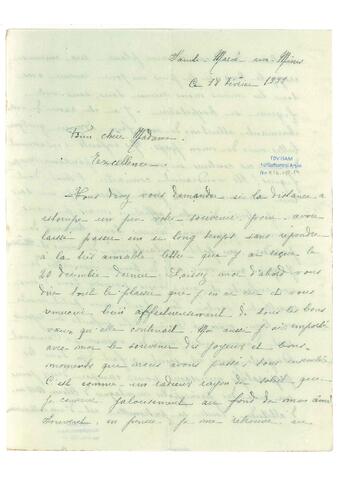 Sainte-Marie-aux-Mines
Ce 18 Février
Bien chère Madame
Excellence
TDV İSAM
Vous devez vous demander si la distance a
estompé un peu votre souvenir pour avoir
laissé passer un si long temps sans répondre
à la très aimable lettre que j'ai reçue le
20 décembre dernier. Laissez moi d'abord vous
dire tout le plaisir que j'en ai eu et vous
remercier bien affectueusement de tous les bons
vœux qu'elle contenait. Moi aussi j'ai emporté
avec moi le souvenir des joyeux et bons
moments que nous avons passé, tous ensemble
C'est comme un radieux rayon de soleil que
je conserve jalousement au fond de mon âme
Souvent, en pensée je me retrouve au